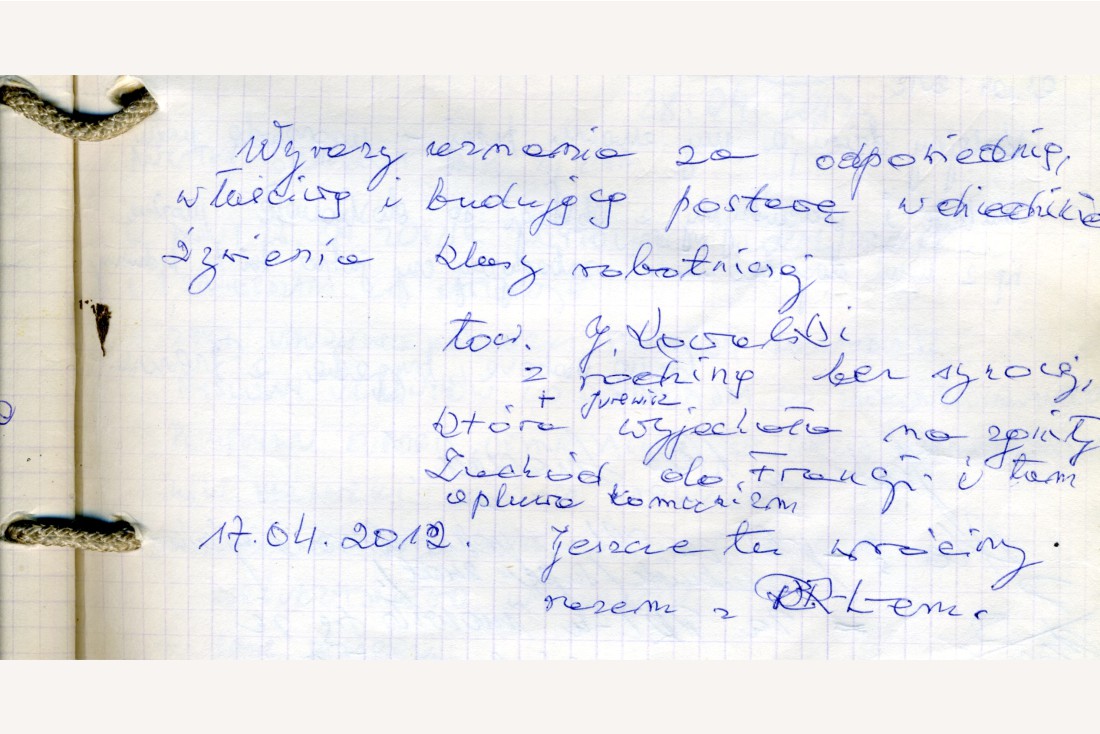 Wyrazy uznania za odpowiednią,
właściwą i budującą postawę w
żywienia klasy robotniczej
tow. J. Kowalski
z rodziną bez synowej,
+ Jurewicz
która wyjechała na zgniły
Zachód do Francji i tam
opluwa komunizm
17.04.2012. Jeszcze tu wrócimy.
razem z PRL-em.